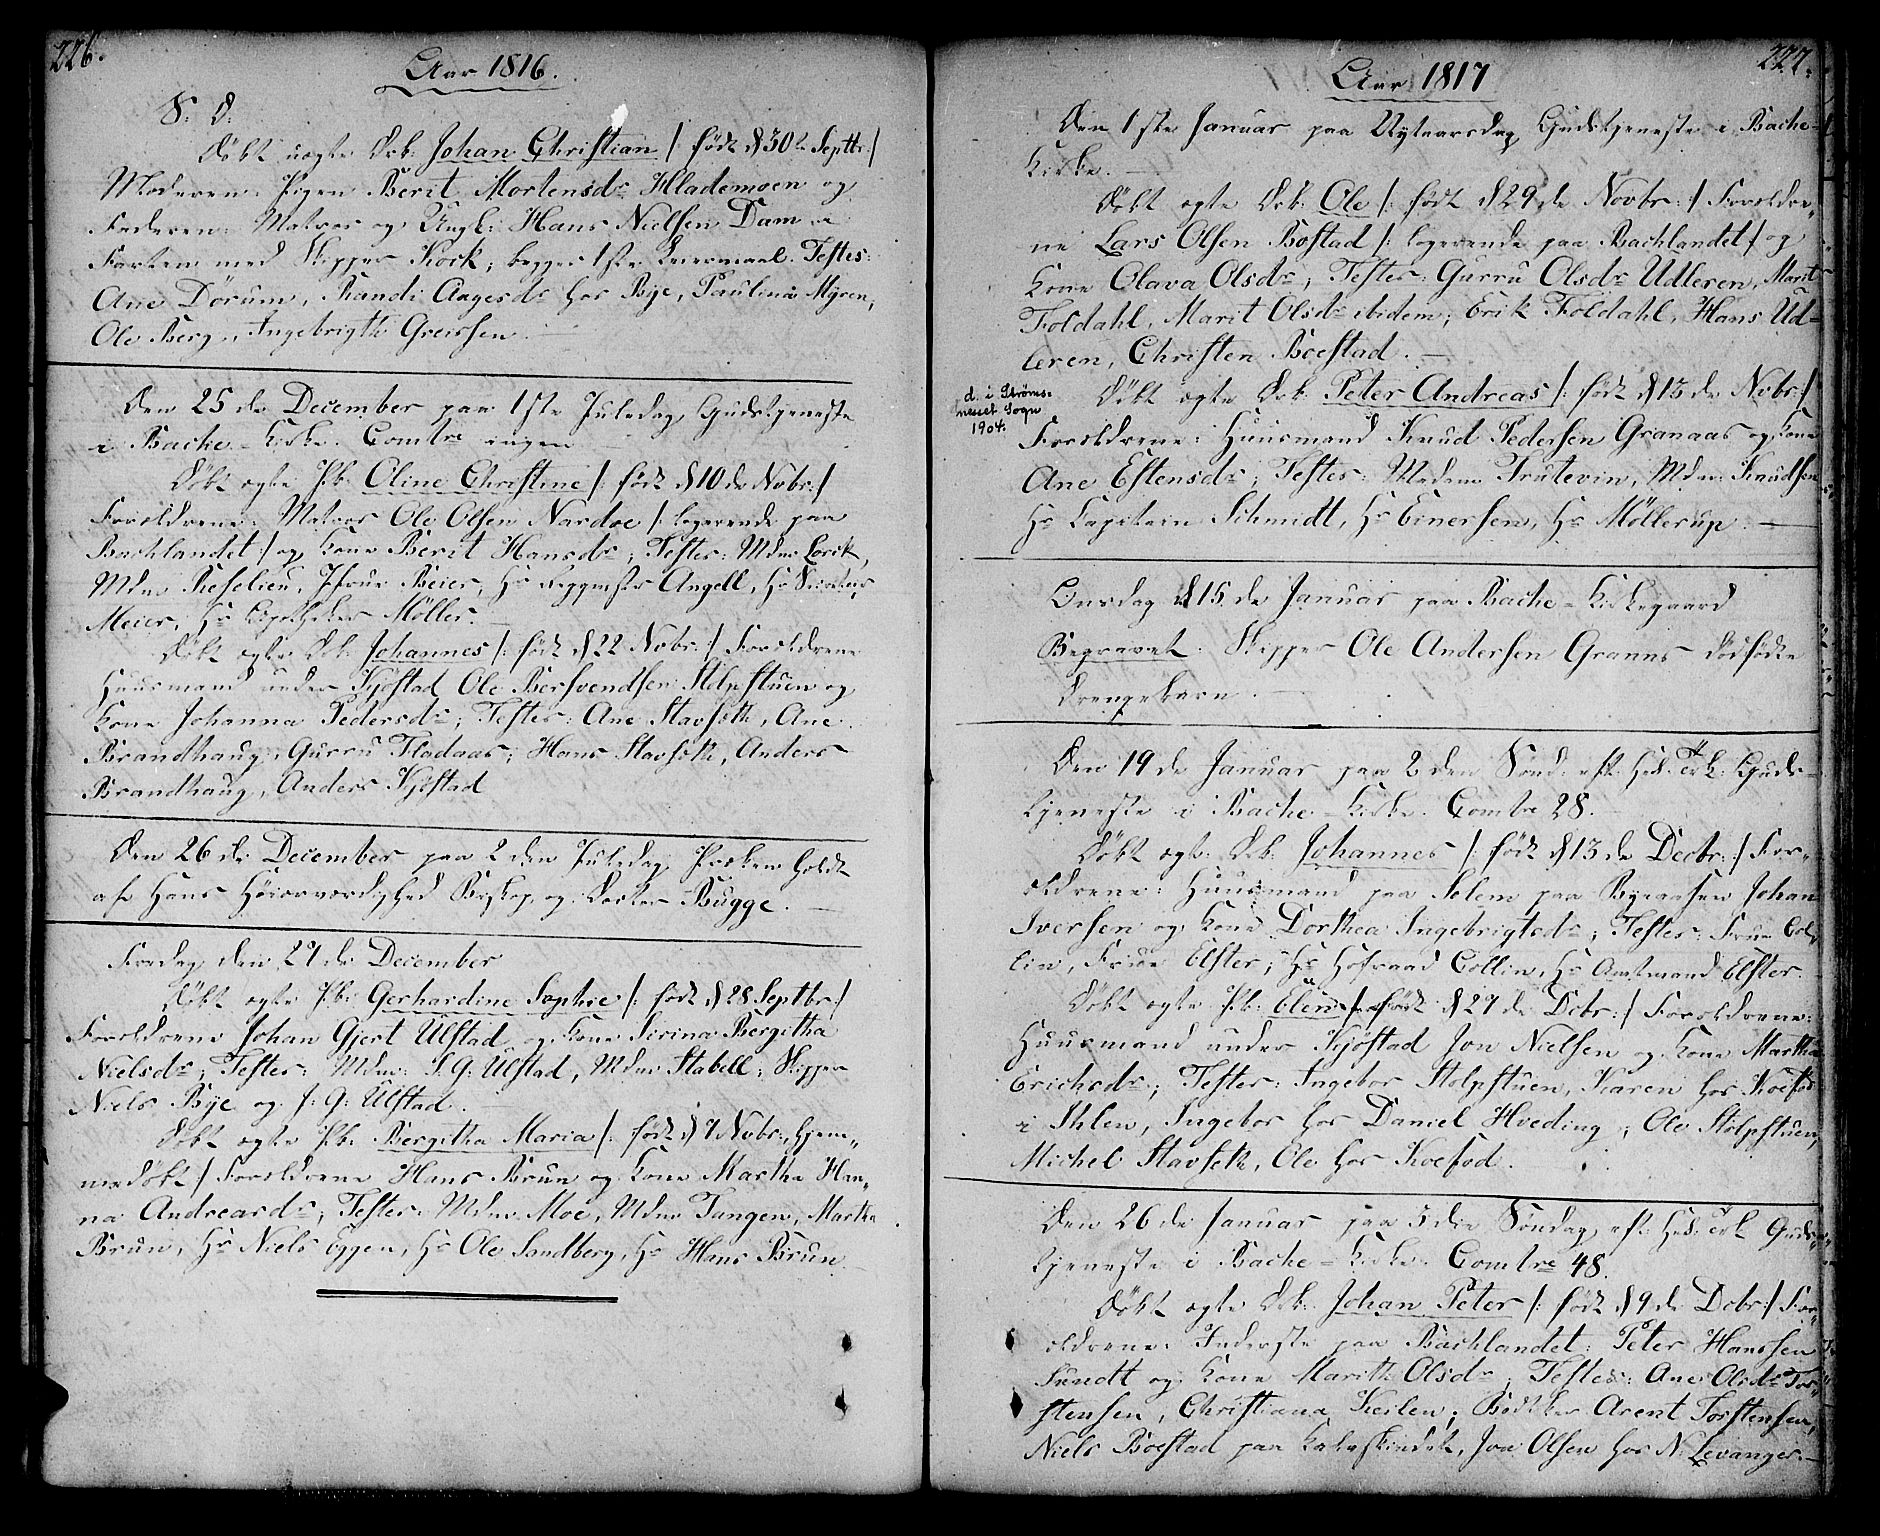 226.
Aar 1816.
S: D:
Døbt uægte Drb: Johan Christian /: født d 30te Septbr:/
Moderen: Pigen Berit Mortensdr Hlademoen og
Faderen: Matros og Ungk: Hans Nielsen Dam i
Farten med Skipper Kock; begges 1ste Leiermaal. Testes:
Ane Dørum, Randi Aagesdr hos Bye, Paulina Myren,
Ole Berg, Ingebrigth Greissen.
Den 25de December paa 1ste Juledag Gudstjeneste
i Bache-Kirke. Comtre ingen
Døbt ægte Pb: Oline Christine /: født d 10de Novbr:/
Forældrene: Matros Ole Olsen Nardoe /: logerende paa
Bachlandet:/ og Kone Berit Hansdr; Testes: Mdme Lorck,
Mdme Reselieu, Jfrue Beier, Hr Angell, Hr
Meier, Hr Apotheker Møller.
Døbt ægte Drb: Johannes /: født d 22 Novbr:/ Forældrene
Huusmand under Kjøstad Ole Bersvendsen Stolpstuen og
Kone Johanna Pedersdr; Testes: Ane Stavseth, Ane
Brandhaug, Gurru Fladaas; Hans Stavseth, Anders
Brandhaug, Anders Kjøstad
Den 26de December paa 2den Juledag Præken holdt
af Hans Høiærværdighed Biskop og Doctor Bugge.
Fredag den 27de December
Døbt ægte Pb: Gerhardine Sophie /: født d 28 Septbr:/
Forældrene Johan Gjert Ulstad og Kone Sirina Bergitha
Nielsdr; Testes: Mdme: S. G: Ulstad, Mdme Stabell; Skipper
Niels Bye og J: G: Ulstad.
Døbt ægte Pb: Bergitha Maria /: født d 7 Novbr:, hjem„
medøbt:/ Forældrene Hans Brun og Kone Martha Han„
na Andreasdr; Testes: Mdme Moe, Mdme Tangen, Martha
Brun, Hr Niels Eggen, Hr Ole Sandberg, Hr Hans Brun
227.
Aar 1817
Den 1ste Januar paa Nytaarsdag Gudstjeneste i Bache-
Kirke.
Døbt ægte Drb: Ole /: født d 29de Novbr:/ Forældre„
ne Lars Olsen Bostad /: logerende paa Bachlandet:/ og
Kone Olava Olsdr; Testes: Gurru Olsdr Udleren, Marit
Foldahl, Marit Olsdr ibidem; Erik Foldahl, Hans Ud-
leren, Christen Boestad.
d. i Strøms-
nesset Sogn
1904.
Døbt ægte Drb: Peter Andreas /: født d 13de Novbr:/
Forældrene: Huusmand Knud Pedersen Granaas og Kone
Ane Estensdr; Testes: Madame Trutevin, Mdme: Knudsen
Hr Capitain Schmidt, Hr Einersen, Hr Møllerup.
Onsdag d 15de Januar paa Bache-Kirkegaard
Begravet. Skipper Ole Andersen Granns dødfødte
Drengebarn.
Den 19de Januar paa 2den Sønd: eft: Hel: 3 K: Guds-
tjeneste i Bache-Kirke. Comtre 28.
Døbt ægte Drb: Johannes /: født d 13de Decbr:/ For„
ældrene: Huusmand paa Solem paa Byeaasen Johan
Iversen og Kone Dorthea Ingebrigtsdr; Testes: Frue Col-
lin, Frue Elster; Hr Hofraad Collin, Hr Amtmand Elster.
Døbt ægte Pb: Elen /: født d 27de Decbr:/ Forældrene:
Huusmand under Kjøstad Jon Nielsen og Kone Martha
Erichsdr; Testes: Ingebor Stolpstuen, Karen hos Koefod
i Ihlen, Ingebor hos Daniel Hveding; Ole Stolpstuen,
Michel Stavseth, Ole hos Koefod.
Den 26de Januar paa 3die Søndag eft: Hel: 3 K Guds-
tjeneste i Bache-Kirke. Comtre 48.
Døbt ægte Drb: Johan Peter /: født d 9de Decbr:/ For„
ældrene: Inderste paa Bachlandet: Peter Hanssen
Sundt og Kone Marith Olsdr; Testes: Ane Olsdr Tor„
stensen, Christiana Keilen; Bødtker Arent Torstensen,
Niels Boestad paa Kalvskindet, Jon Olsen hos N: Levanger.